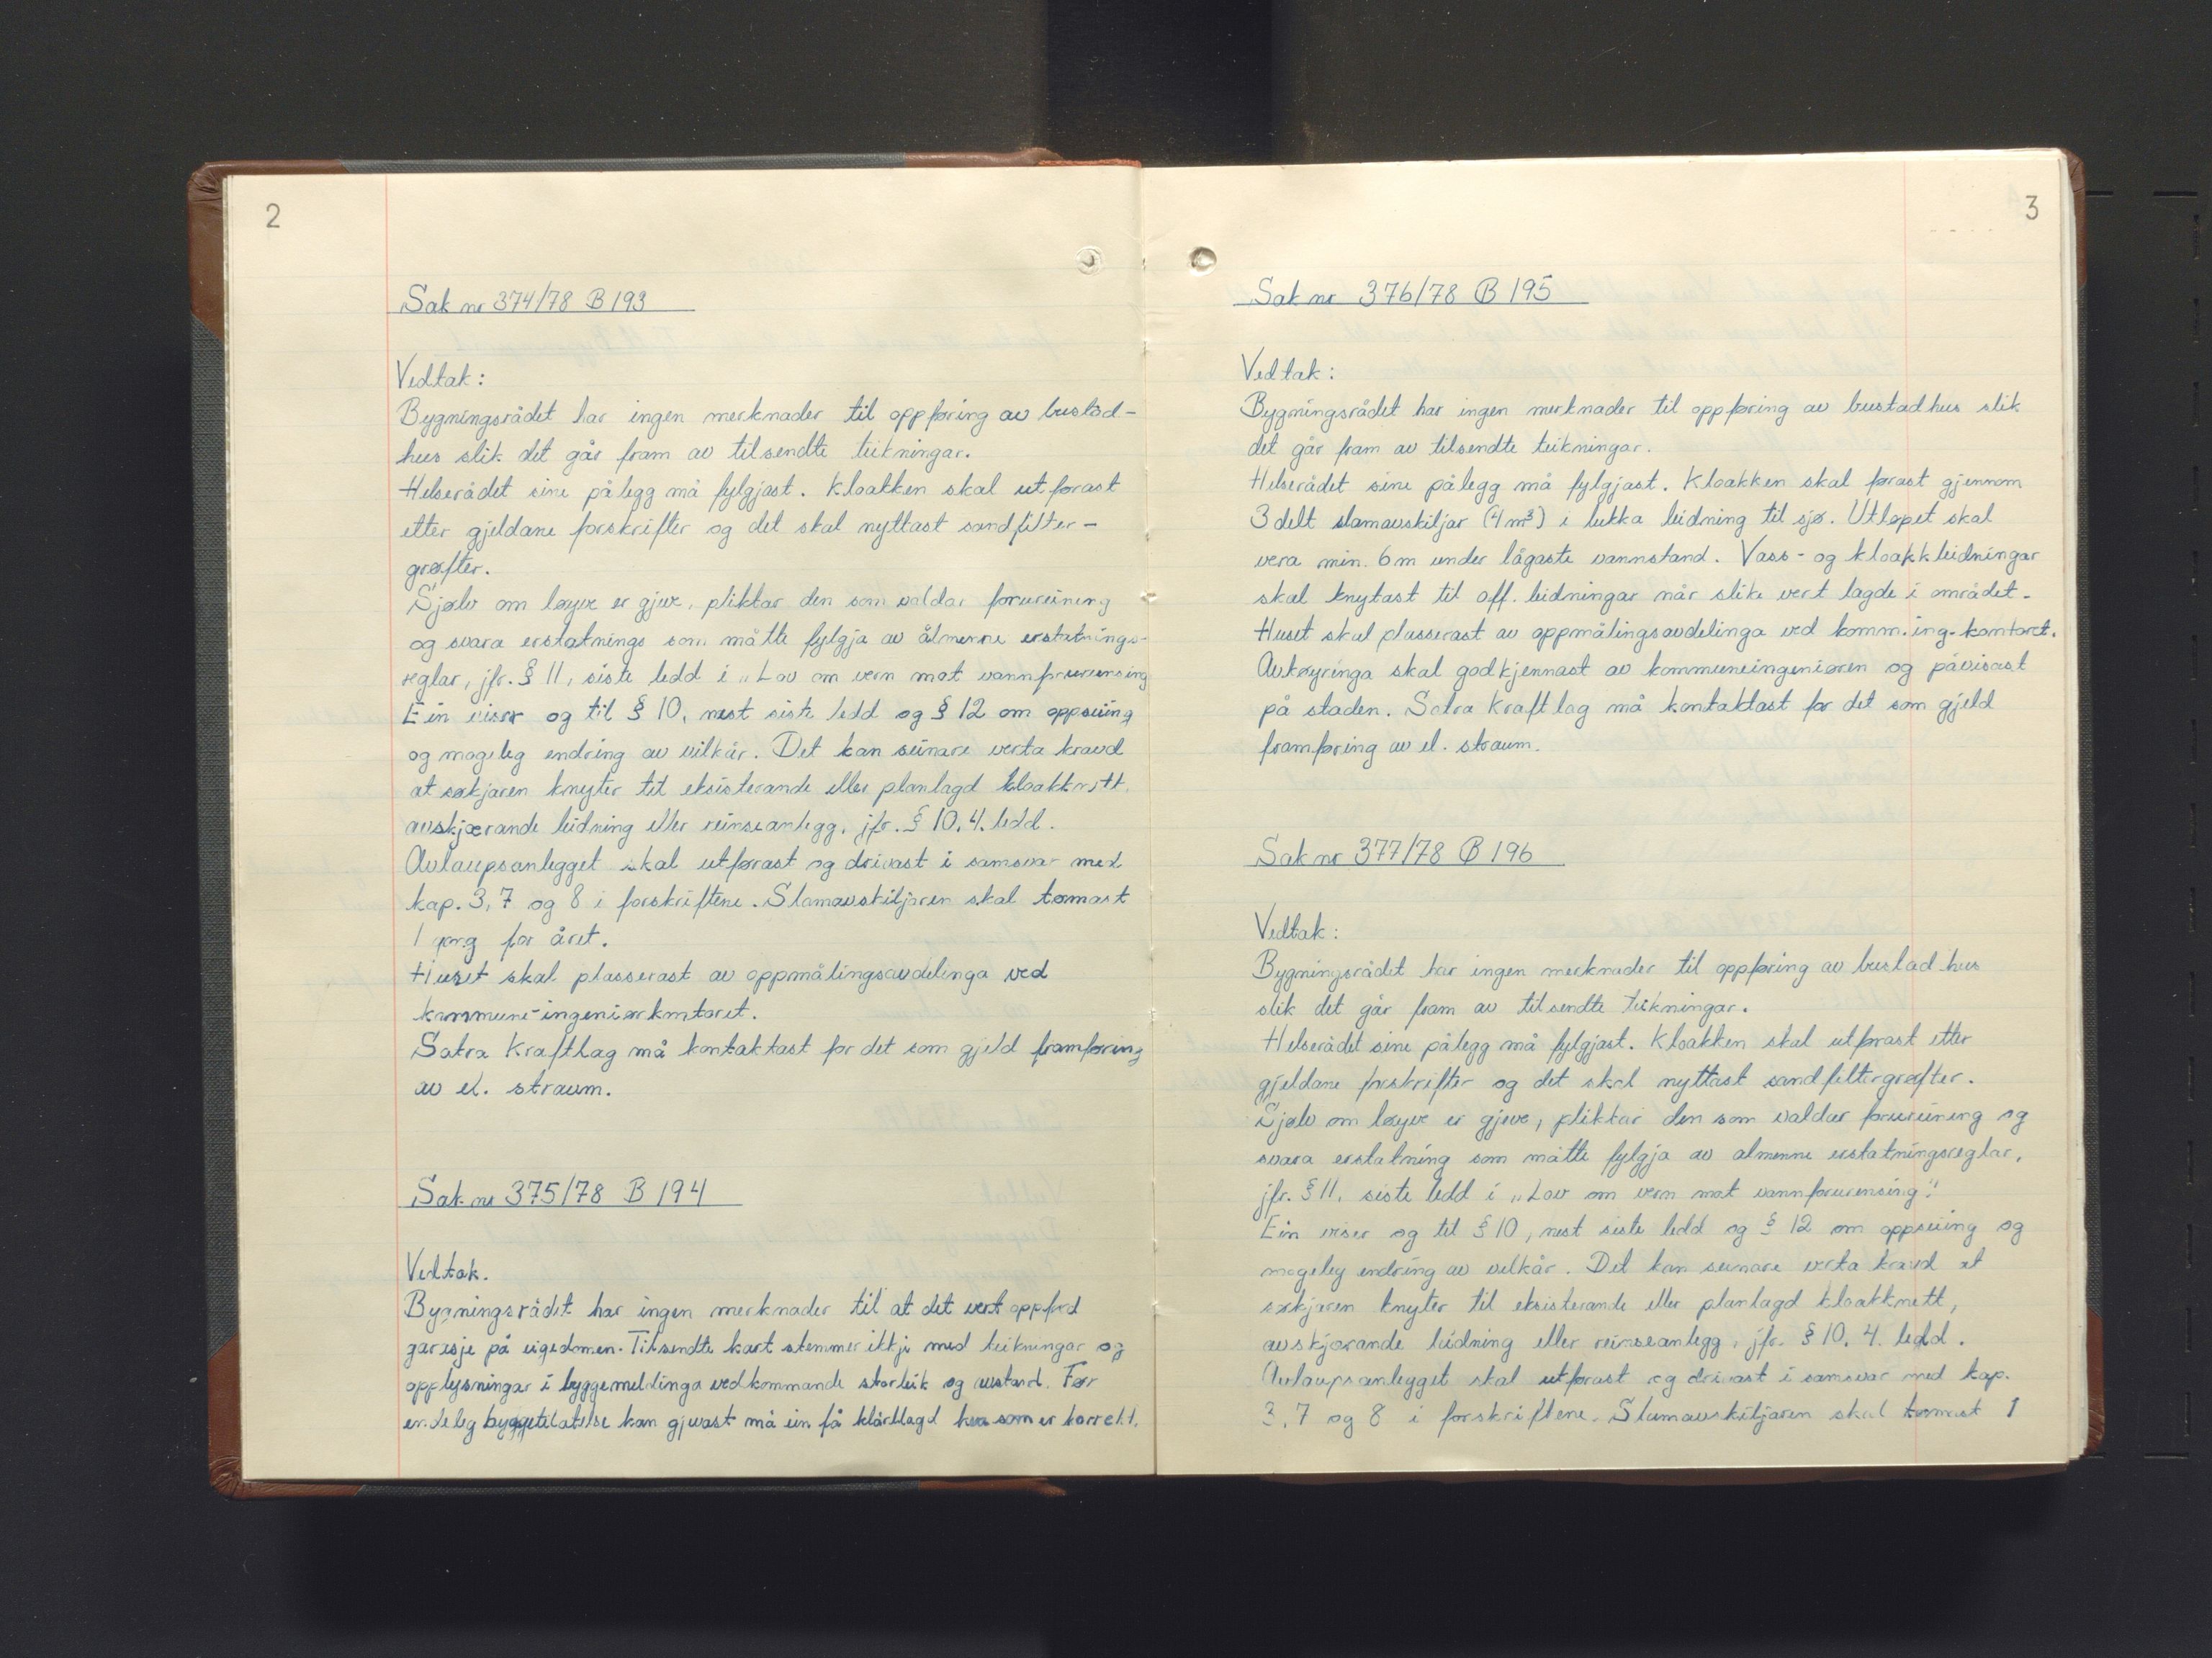 2
Sak nr 374/78 B 193
Vedtak:
Bygningsrådet har ingen merknader til oppføring av bustad-
hus slik det går fram av tilsendte teikningar.
Helserådet sine pålegg må fylgjast. Kloakken skal utførast
etter gjeldane forskrifter og det skal nyttast sandfilter-
grøfter.
Sjølv om løyve er gjeve, pliktar den som valdar forureining
og svara erstatnings som måtte fylgja av ålmenne erstatnings-
reglar, jfr. § 11, siste ledd i "Lov om vern mot vannforurensing
Ein viser og til § 10, nest siste ledd og § 12 om oppseiing
og mogeleg endring av vilkår. Det kan seinare verta kravd
at søkjaren knyter til eksisterande eller planlagd kloakknett,
avskjærande leidning eller reinseanlegg, jfr. § 10. 4. ledd.
Avlaupsanlegget skal utførast og drivast i samsvar med
kap. 3, 7 og 8 i forskriftene. Slamavskiljaren skal tømast
1 gong for året.
Huset skal plasserast av oppmålingsavdelinga ved
kommune-ingeniørkontoret.
Sotra Kraftlag må kontaktast for det som gjeld framføring
av el. straum.
Sak nr 375/78 B 194
Vedtak.
Bygningsrådet har ingen merknader til at det vert oppførd
garasje på eigedomen. Tilsendte kart stemmer ikkje med teikningar og
opplysningar i byggemeldinga vedkommande storleik og avstand. Før
endeleg byggetilatelse kan gjevast må ein få klårlagd kva som er korrekt.
3
Sak nr 376/78 B 195
Vedtak:
Bygningsrådet har ingen merknader til oppføring av bustadhus slik
det går fram av tilsendte teikningar.
Helserådet sine pålegg må fylgjast. Kloakken skal førast gjennom
3 delt slamavskiljar (4 m³) i lukka leidning til sjø. Utløpet skal
vera min. 6 m under lågaste vannstand. Vass- og kloakkleidningar
skal knytast til off. leidningar når slike vert lagde i området.
Huset skal plasserast av oppmålingsavdelinga ved komm. ing. kontoret.
Avkøyringa skal godkjennast av kommuneingeniøren og påvisast
på staden. Sotra Kraftlag må kontaktast for det som gjeld
framføring av el. straum.
Sak nr 377/78 B 196
Vedtak:
Bygningsrådet har ingen merknader til oppføring av bustad hus
slik det går fram av tilsendte teikningar.
Helserådet sine pålegg må fylgjast. Kloakken skal utførast etter
gjeldane forskrifter og det skal nyttast sandfiltergrøfter.
Sjølv om løyve er gjeve, pliktar den som valdar forureining og
svara erstatning som måtte fylgja av almenne erstatningsreglar,
jfr. § 11, siste ledd i "Lov om vern mot vannforurensing".
Ein viser og til § 10, nest siste ledd og § 12 om oppseiing og
mogeleg endring av vilkår. Det kan seinare verta kravd at
søkjaren knyter til eksisterande eller planlagd kloakknett,
avskjærande leidning eller reinseanlegg, jfr. § 10. 4. ledd.
Avlaupsanlegget skal utførast og drivast i samsvar med kap.
3, 7 og 8 i forskriftene. Slamavskiljaren skal tømast 1